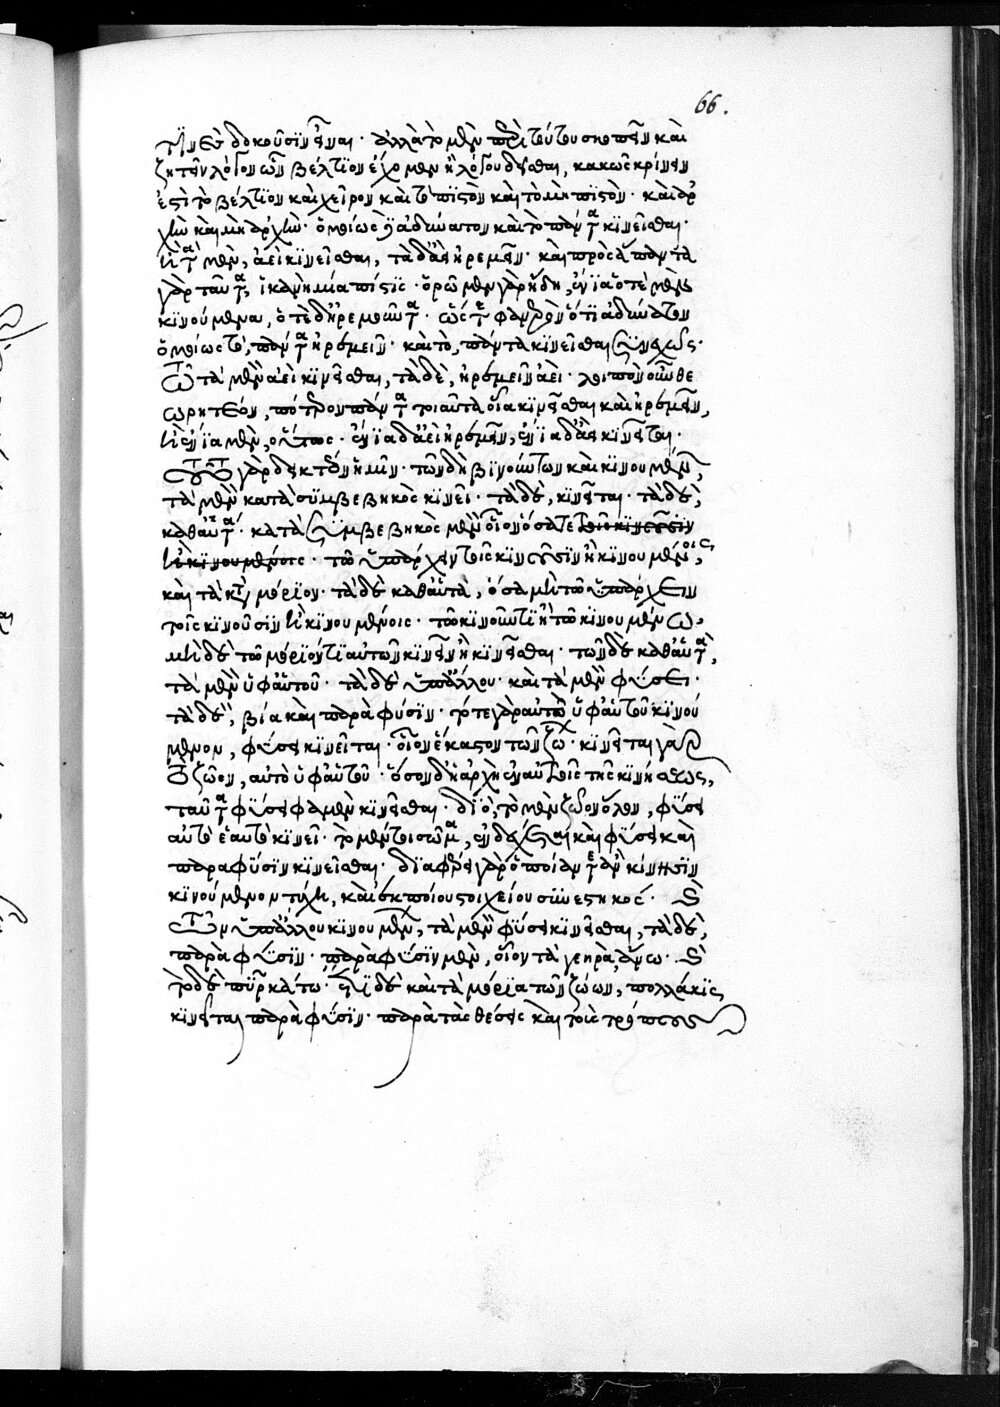 66.
τισιν δοκοῦσιν εἶναι· ἀλλὰ τὸ μὲν περὶ τούτου σκοπεῖν καὶ
ζητεῖν λόγον ὧν βέλτιον ἔχομεν ἢ λόγου δεῖσθαι, κακῶς κρίνειν
ἐστὶ τὸ βέλτιον καὶ χεῖρον καὶ τὸ πιστὸν καὶ τὸ μὴ πιστὸν· καὶ ἀρ
χὴν καὶ μὴ ἀρχήν· ὁμοίως δὲ ἀδύνατον καὶ τὸ πάντα κινεῖσθαι·
ἢ τὰ μὲν, ἀεὶ κινεῖσθαι, τὰ δ' ἀεὶ ἠρεμεῖν· καὶ πρὸς ἅπαντα
γὰρ ταῦτα, ἱκανὴ μία πίστις· ὁρῶμεν γὰρ ἤδη, ἔνια ὁτὲ μὲν
κινούμενα, ὁτὲ δ' ἠρεμοῦντα· ὥστε φανερὸν ὅτι ἀδύνατον
ὁμοίως τὸ, πάντα ἠρεμεῖν· καὶ τὸ, πάντα κινεῖσθαι συνεχῶς·
τῷ τὰ μὲν ἀεὶ κινεῖσθαι, τὰ δὲ, ἠρεμεῖν ἀεὶ· λοιπὸν οὖν θε
ωρητέον, πότερον πάντα τοιαῦτα οἷα κινεῖσθαι καὶ ἠρεμεῖν,
ἢ ἔνια μὲν, οὕτως· ἔνια δ' ἀεὶ ἠρεμεῖν, ἔνια δ' ἀεὶ κινεῖται·
τοῦτο γὰρ δεικτέον ἡμῖν· τῶν δὴ κινούντων καὶ κινουμένων,
τὰ μὲν κατὰ συμβεβηκὸς κινεῖ· τὰ δὲ, κινεῖται· τὰ δὲ,
καθ' αὑτά· κατὰ συμβεβηκὸς μὲν οἷον ὅσα τε τοῖς κινοῦσιν
ἢ κινουμένοις· τῷ ὑπάρχειν τοῖς κινοῦσιν ἢ κινουμένοις,
καὶ τὰ κατὰ μόριον· τὰ δὲ καθ' αὑτὰ, ὅσα μὴ τῷ ὑπάρχειν
τοῖς κινοῦσιν ἢ κινουμένοις· τῷ κινοῦντι ἢ τῷ κινουμένῳ·
μηδὲ τῷ μόριόν τι αὐτῶν κινεῖν ἢ κινεῖσθαι· τῶν δὲ καθ' αὑτὰ,
τὰ μὲν ὑφ' αὑτοῦ· τὰ δὲ ὑπ' ἄλλου· καὶ τὰ μὲν φύσει·
τὰ δὲ, βία καὶ παρὰ φύσιν· τό τε γὰρ αὐτὸ ὑφ' αὑτοῦ κινού
μενον, φύσει κινεῖται· οἷον ἕκαστον τῶν ζώων· κινεῖται γὰρ
τὸ ζῶον, αὐτὸ ὑφ' αὑτοῦ· ὅσων δ' ἡ ἀρχὴ ἐν αὐτοῖς τῆς κινήσεως,
ταῦτα φύσει φαμὲν κινεῖσθαι· διὸ, τὸ μὲν ζῶον ὅλον, φύσει
αὐτὸ ἑαυτὸ κινεῖ· τὸ μέντοι σῶμα, ἐνδέχεται καὶ φύσει καὶ
παρὰ φύσιν κινεῖσθαι· διαφέρει γὰρ ὁποίαν τε ἂν κίνησιν
κινούμενον τύχῃ, καὶ ἐκ ποίου στοιχείου συνεστηκός· καὶ
τῶν ὑπ' ἄλλου κινουμένων, τὰ μὲν φύσει κινεῖσθαι, τὰ δὲ,
παρὰ φύσιν· παρὰ φύσιν μὲν, οἷον τὰ γεηρὰ, ἄνω· καὶ
τὸ δὲ πῦρ κάτω· ἔτι δὲ καὶ τὰ μόρια τῶν ζώων, πολλάκις
κινεῖται παρὰ φύσιν· παρὰ τὰς θέσεις καὶ τοὺς τρόπους